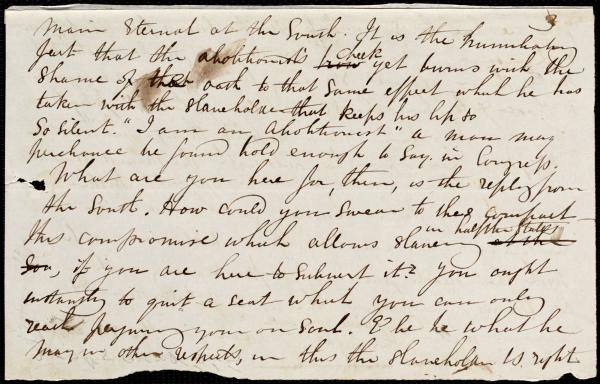 main Eternal at the South. It is the humiliating
fact that the abolitionist's brow cheek yet burns with the
shame of that oath to that same effect what he has
taken with the slaveholder that keeps his lip so
so silent. "I am an Abolitionist" a man may
perchance be found bold enough to say in Congress.
What are you here for, then, is the reply from
the South. How could you swear to the compact
this compromise which allows slavery in half the States
you, if you are here to subvert it? You ought
instantly to quit a seat which you can only
reach perjuring your own soul. & be he what he
may in other respects, in this the slaveholder is right